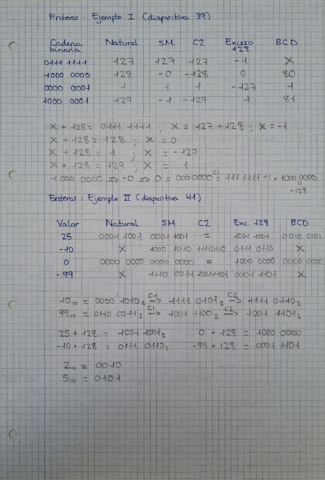 Enteros : Ejemplo I (diapositiva 39)
Cadena binaria Natural SM C2 Exceso 128 BCD
0111 1111 127 127 127 -1 X
1000 0000 128 -0 -128 0 80
0000 0001 1 1 1 -127 1
1000 0001 129 -1 -127 1 81
X + 128 = 0111 1111 ; X = 127 - 128 ; X = -1
X + 128 = 128 ; X = 0
X + 128 = 1 ; X = -127
X + 128 = 129 ; X = 1
Enteros : Ejemplo II (diapositiva 41)
Valor Natural SM C2 Exc. 128 BCD
25 0001 1001 0001 1001 = 1001 1001 0010 0101
-10 X 1000 1010 11110110 0111 0110 X
0 0000 0000 0000 0000 = 1000 0000 0000 0000
-99 X 1110 0011 10011101 0001 1101 X
10₁₀ = 0000 1010₂ C1→ 1111 0101₂ C2→ 1111 0110₂
99₁₀ = 0110 0011₂ C1→ 1001 1100₂ C2→ 1001 1101₂
25 + 128 = 1001 1001₂ 0 + 128 = 1000 0000
-10 + 128 = 0111 0110₂ -99 + 128 = 0001 1101
2₁₀ = 0010
5₁₀ = 0101